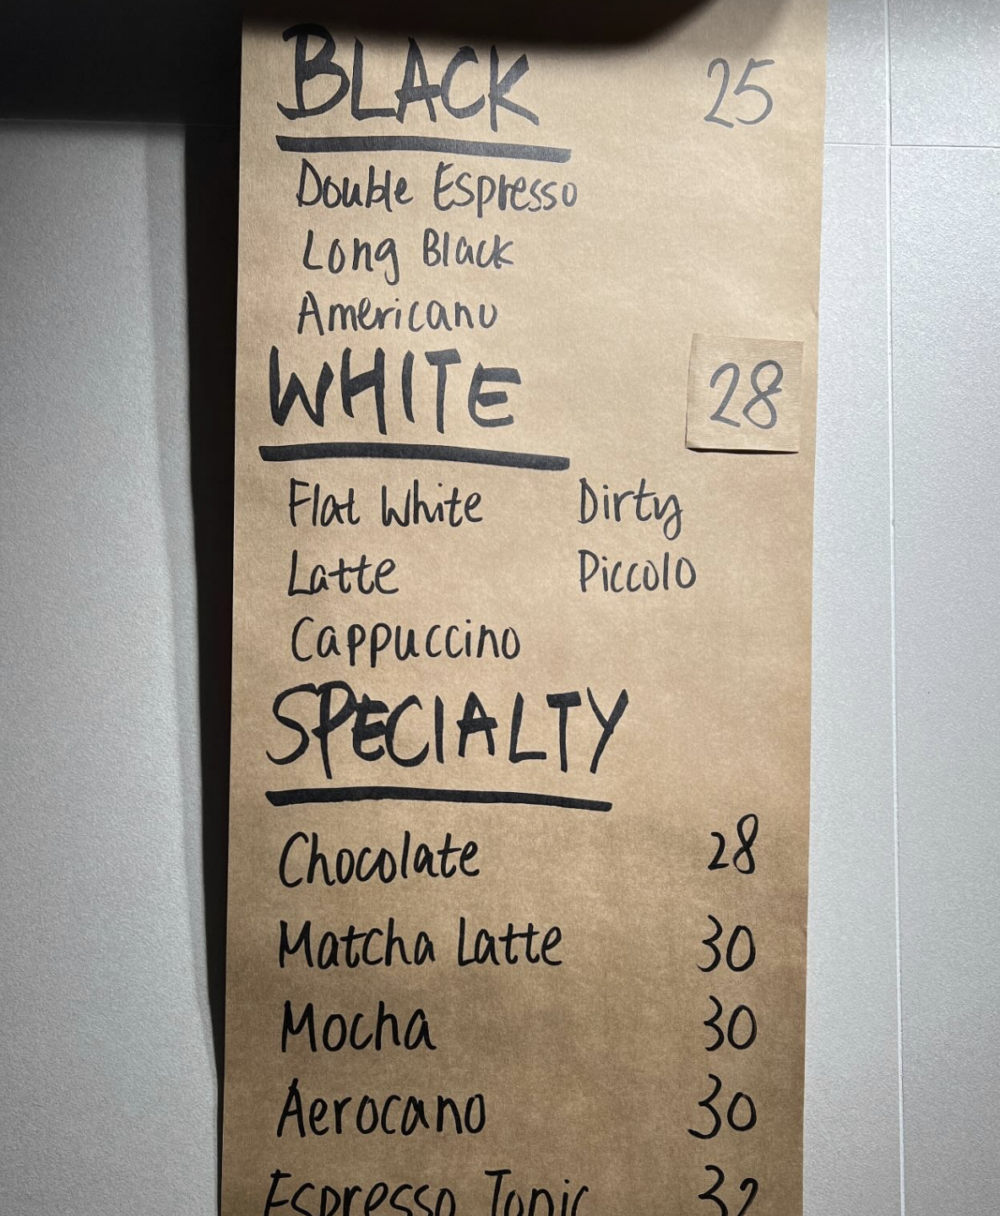 BLACK 25
Double Espresso
Long Black
Americano
WHITE 28
Flat White Dirty
Latte Piccolo
Cappuccino
SPECIALTY
Chocolate 28
Matcha Latte 30
Mocha 30
Aerocano 30
Espresso Tonic 32